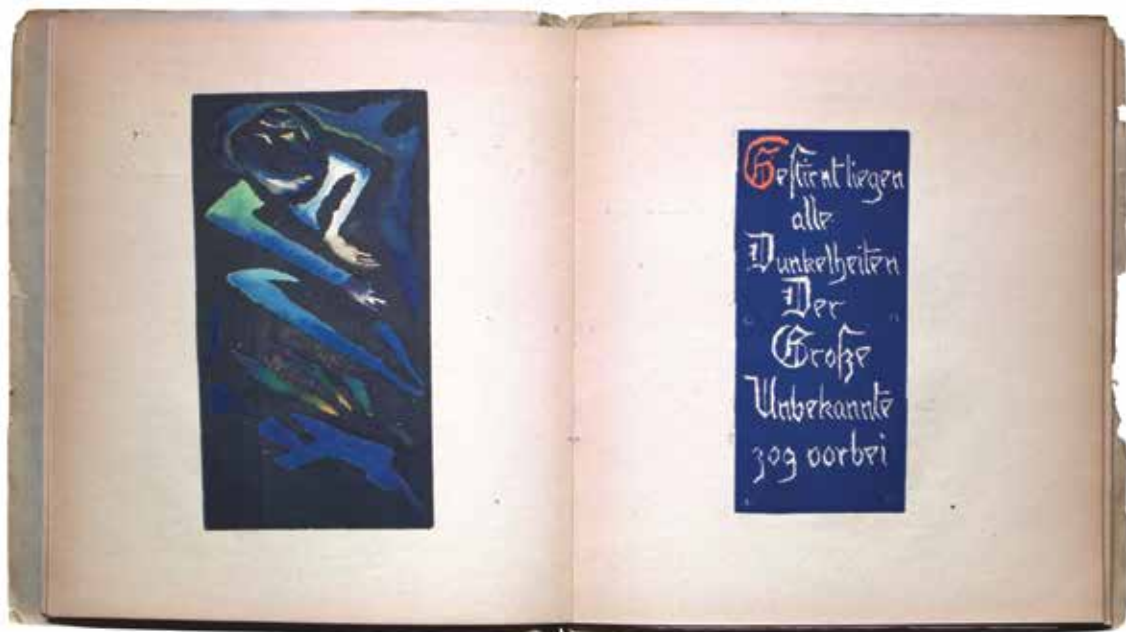 Gestirnt liegen
alle
Dunkelheiten
Der
Große
Unbekannte
zog vorbei